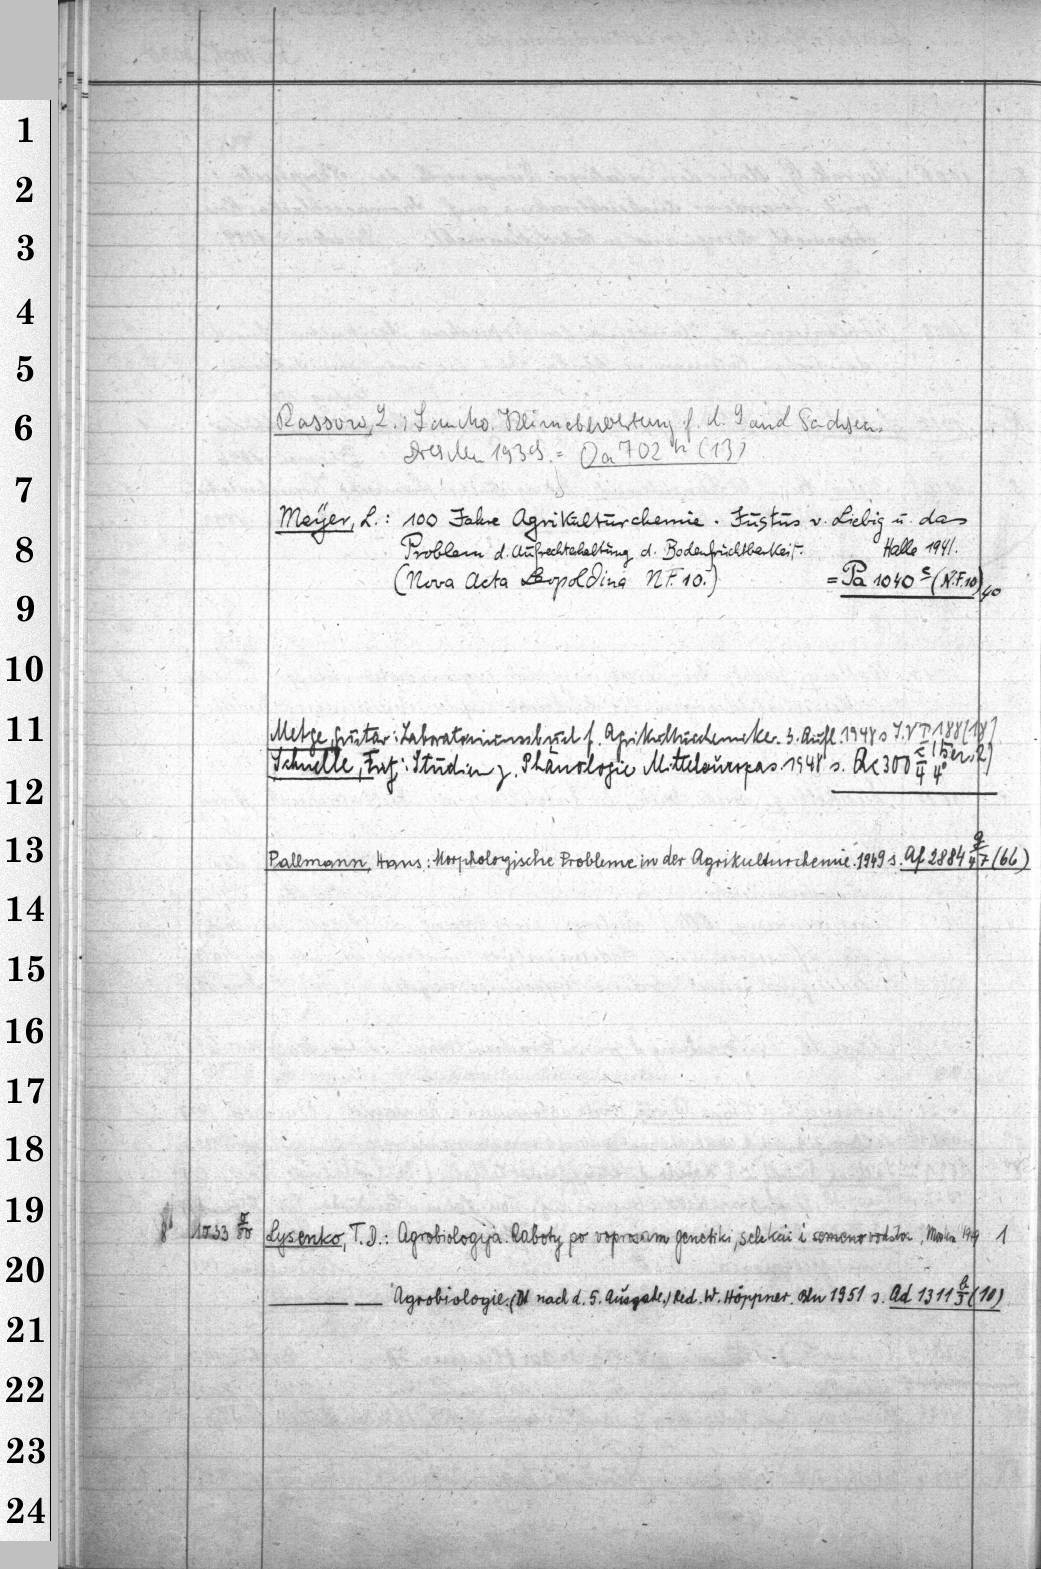 1
2
3
4
5
6
Rassow, L.: Landw. Kleinbewertung f. d. Land Sachsen.
Dresden 1939. = Oa 702 h (13)
7
Meÿer, L.: 100 Jahre Agrikulturchemie. Justus v. Liebig u. das
8
Problem d. Aufrechterhaltung d. Bodenfruchtbarkeit. Halle 1941.
(Nova Acta Leopoldina N.F. 10.) = Pa 1040 c (N.F. 10) 40
9
10
11
Metge, Gustav: Laboratoriumsbuch f. Agrikulturchemiker. 3. Aufl. 1948 s 188 (18)
Schnelle, Fritz: Studien z. Phänologie Mitteleuropas 1948 s. Qc 300 c/4 4°
12
13
Pallmann, Hans: Morphologische Probleme in der Agrikulturchemie. 1949 s. Af 2884 g/47 (66)
14
15
16
17
18
19
1033 Lysenko, T. D.: Agrobiologija. Raboty po voprosam genetiki, selekcii i semenovodstva, Moskva 1949 1
20
Agrobiologie. (Dt nach d. 5. Ausgabe.) Red. W. Höppner. Bln 1951 s. Ad 1311 b/5 (10)
21
22
23
24